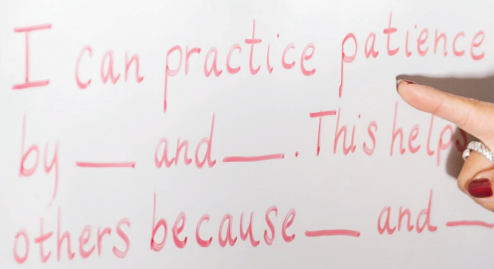 I can practice patience
by __ and __. This helps
others because __ and __